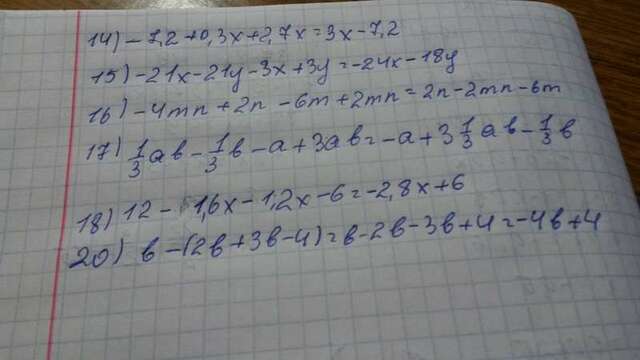 14) -7,2+0,3x+2,7x=3x-7,2
15) -21x-21y-3x+3y=-24x-18y
16) -4mn+2n-6m+2mn=2n-2mn-6m
17) 1/3ab-1/3b-a+3ab=-a+3 1/3ab-1/3b
18) 12-1,6x-1,2x-6=-2,8x+6
20) b-(2b+3b-4)=b-2b-3b+4=-4b+4